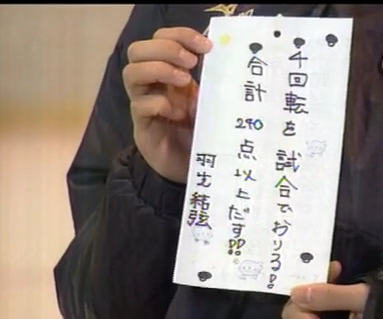 4回転を試合でおりる!
合計240点以上だす!!
羽生結弦